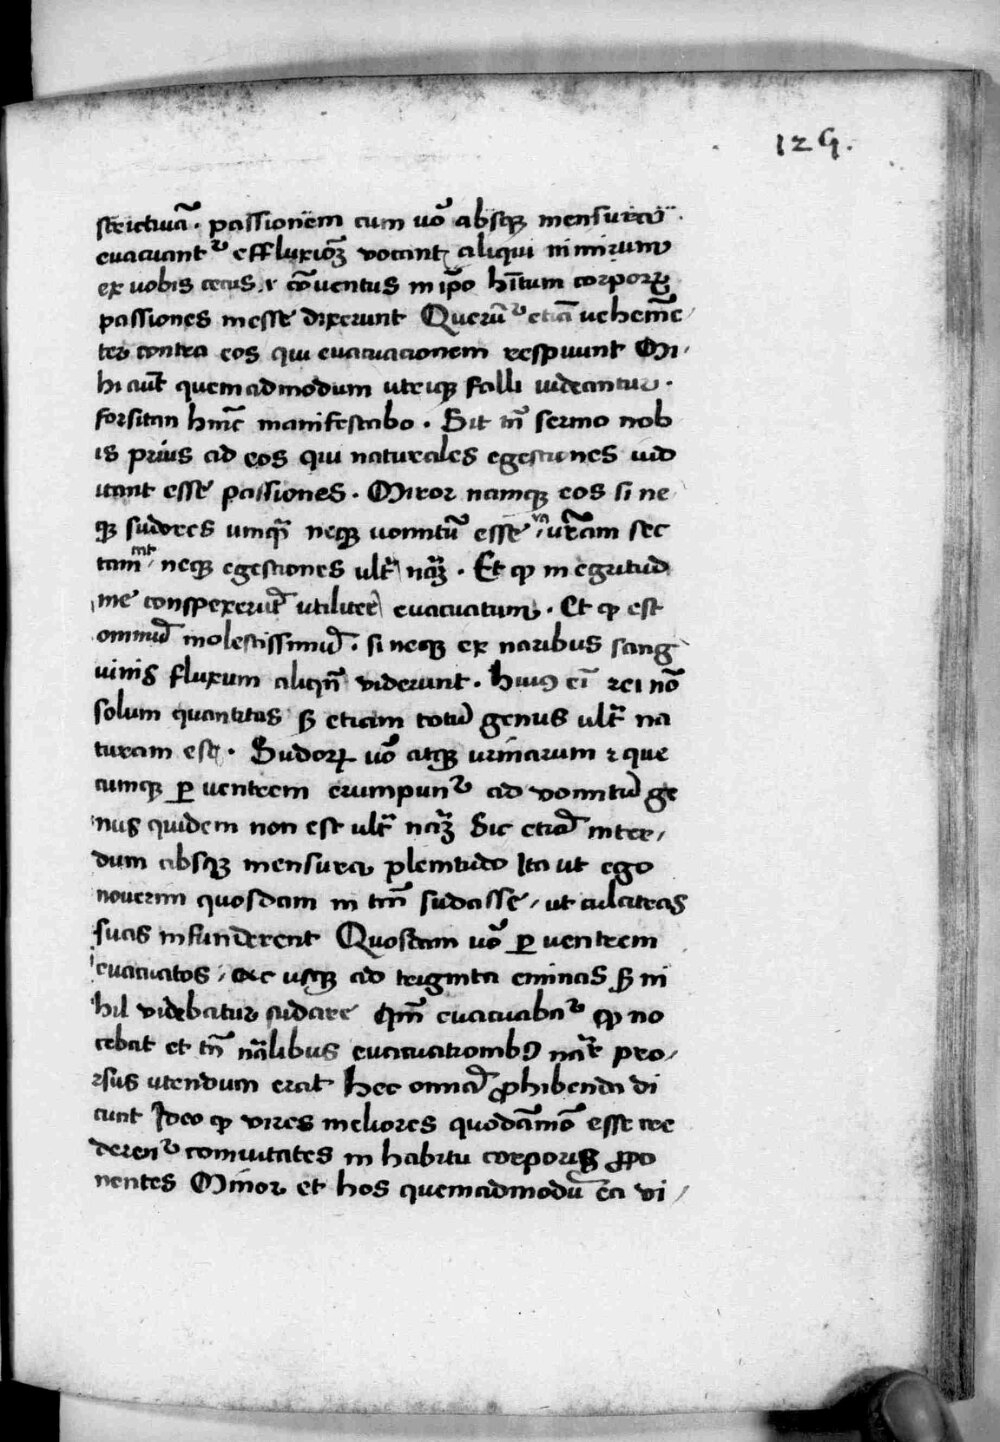 129.
strictivā. passionem cum uo᷒ absqꝫ mensura
euacuantᷣ effluxioꝫ vocant aliqui nimirum
ex uobis cetus. ⁊ cōuentus in ip̄o hītum corporꝫ
passiones inesse dixerunt Querūᷣ etiā uehemē
ter contra eos qui euacuacionem respuunt Mi
hi aut̄ quemadmodum utriqꝫ falli uideantur.
forsitan hinc̄ manifestabo. Sit tn̄ sermo nob
is prius ad eos qui naturales egestiones uid
itant esse passiones. Miror namqꝫ eos si ne
qꝫ sudores umqᷓ neqꝫ uomitū esse urām sec
tam neqꝫ egestiones ultᷓ naꝫ. Et qꝫ in egritud
ine conspexerūt utiliter euacuatum. Et qꝫ est
omniū molestissimū. si neqꝫ ex naribus sang
uinis fluxum aliqn̄ viderunt. huiꝰ eī rei nō
solum quantitas sꝫ etiam totū genus ultᷓ na
turam est. Sudorꝝ uo᷒ atqꝫ urinarum ⁊ que
cumqꝫ ꝑ uentrem erumpunᷣ ad vomitū ge
nus quidem non est ultᷓ naꝫ Sic etiā inter
dum absqꝫ mensura plenitudo Ita ut ego
nouerim quosdam in tm̄ sudasse, ut culcitras
suas infunderent Quosdam uo᷒ ꝑ uentrem
euacuatos, ac usqꝫ ad triginta eminas sꝫ ni
hil videbatur sidare Qm̄ euacuabaᷣ qꝫ no
cebat et tn̄ nālibus euacuationibꝰ naᷣ pro
rsus utendum erat hec omnia ꝓhibenda di
cunt Ideo qꝫ vires meliores quodāmō esse cre
derenᷣ comuitates in habitu corporis ꝓpo
nentes Miror et hos quemadmodū ea vi